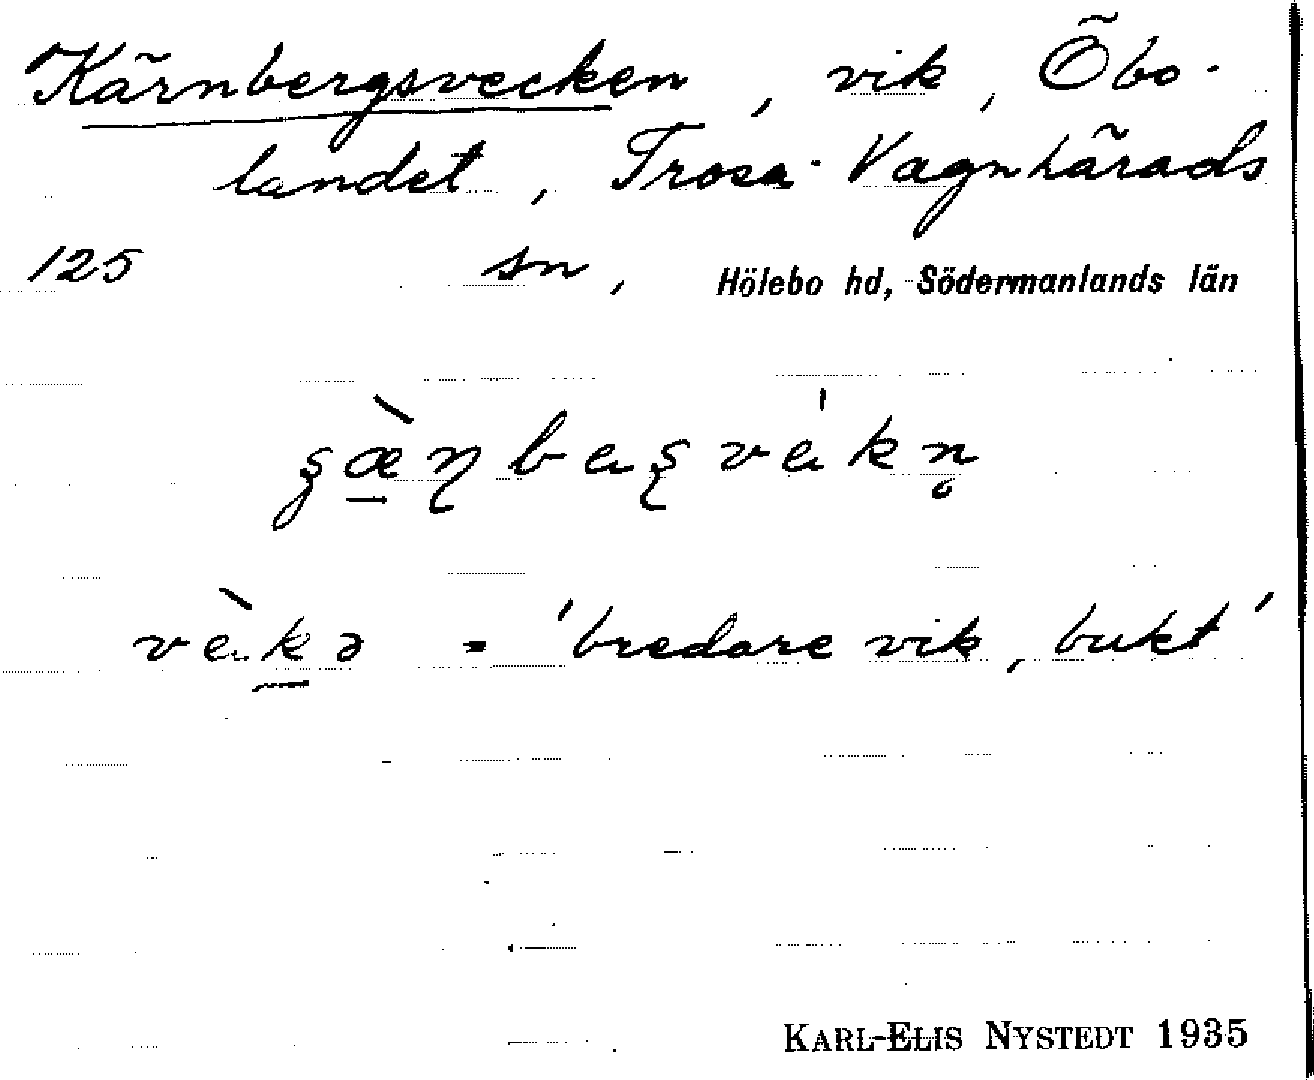 Kärnbergsvecken, vik, Öbo-
landet, Trosa-Vagnhärads
125 sn, Hölebo hd, Södermanlands län
vèkə = 'bredare vik, bukt'
KARL-ELIS NYSTEDT 1935